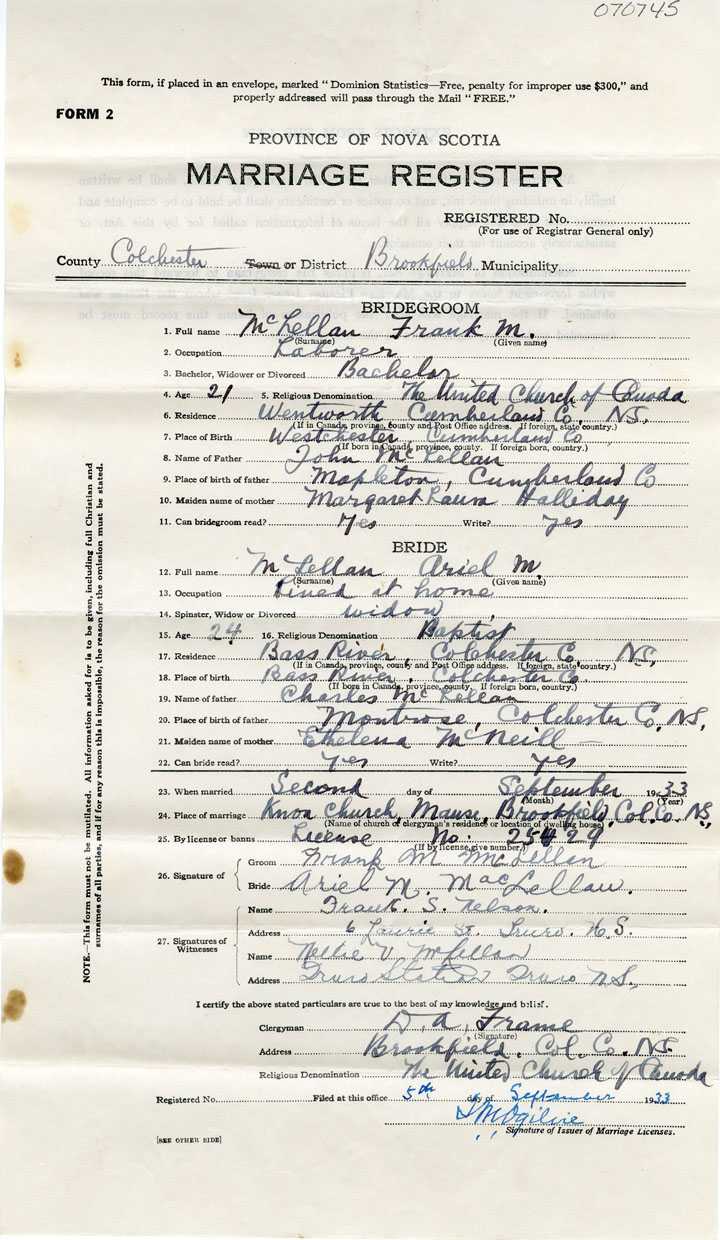 070745
This form, if placed in an envelope, marked "Dominion Statistics—Free, penalty for improper use $300," and
properly addressed will pass through the Mail "FREE."
FORM 2
PROVINCE OF NOVA SCOTIA
MARRIAGE REGISTER
REGISTERED No.
(For use of Registrar General only)
County Colchester Town or District Brookfield Municipality
BRIDEGROOM
1. Full name McLellan Frank M.
(Surname) (Given name)
2. Occupation Laborer
3. Bachelor, Widower or Divorced Bachelor
4. Age 21 5. Religious Denomination The United Church of Canada
6. Residence Wentworth Cumberland Co. N.S.
(If in Canada, province, county and Post Office address. If foreign, state country.)
7. Place of Birth Westchester, Cumberland Co
(If born in Canada, province, county. If foreign born, country.)
8. Name of Father John McLellan
9. Place of birth of father Mapleton, Cumberland Co
10. Maiden name of mother Margaret Laura Halliday
11. Can bridegroom read? Yes Write? yes
BRIDE
12. Full name McLellan Ariel M.
(Surname) (Given name)
13. Occupation Lived at home
14. Spinster, Widow or Divorced widow
15. Age 24 16. Religious Denomination Baptist
17. Residence Bass River, Colchester Co, N.S,
(If in Canada, province, county and Post Office address. If foreign, state country.)
18. Place of birth Bass River, Colchester Co.
(If born in Canada, province, county. If foreign born, country.)
19. Name of father Charles McLellan
20. Place of birth of father Montrose, Colchester Co, N.S,
21. Maiden name of mother Ethelena McNeill
22. Can bride read? yes Write? yes
23. When married Second day of September 1933
(Month) (Year)
24. Place of marriage Knox church, Manse, Brookfield, Col. Co. N.S,
(Name of church of clergyman's residence or location of dwelling house)
25. By license or banns License No: 25429
(If by license, give number)
26. Signature of
Groom Frank M McLellan
Bride Ariel N. MacLellan.
27. Signatures of Witnesses
Name Frank. S. Nelson.
Address 6 Laurie St. Truro N.S.
Name Nellie V McLellan
Address Truro Station Truro N.S,
I certify the above stated particulars are true to the best of my knowledge and belief.
Clergyman D. A. Frame
(Signature)
Address Brookfield, Col. Co. N.S.
Religious Denomination The United Church of Canada
Registered No. Filed at this office 5th day of September 1933
Ogilvie
Signature of Issuer of Marriage Licenses.
[SEE OTHER SIDE]
NOTE.—This form must not be mutilated. All information asked for is to be given, including full Christian and
surnames of all parties, and if for any reason this is impossible, the reason for the omission must be stated.